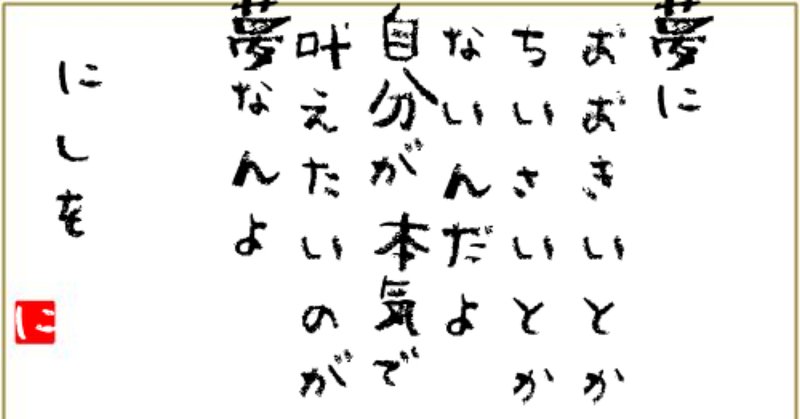 夢に
おおきいとか
ちいさいとか
ないんだよ
自分が本気で
叶えたいのが
夢なんよ
にしを
に